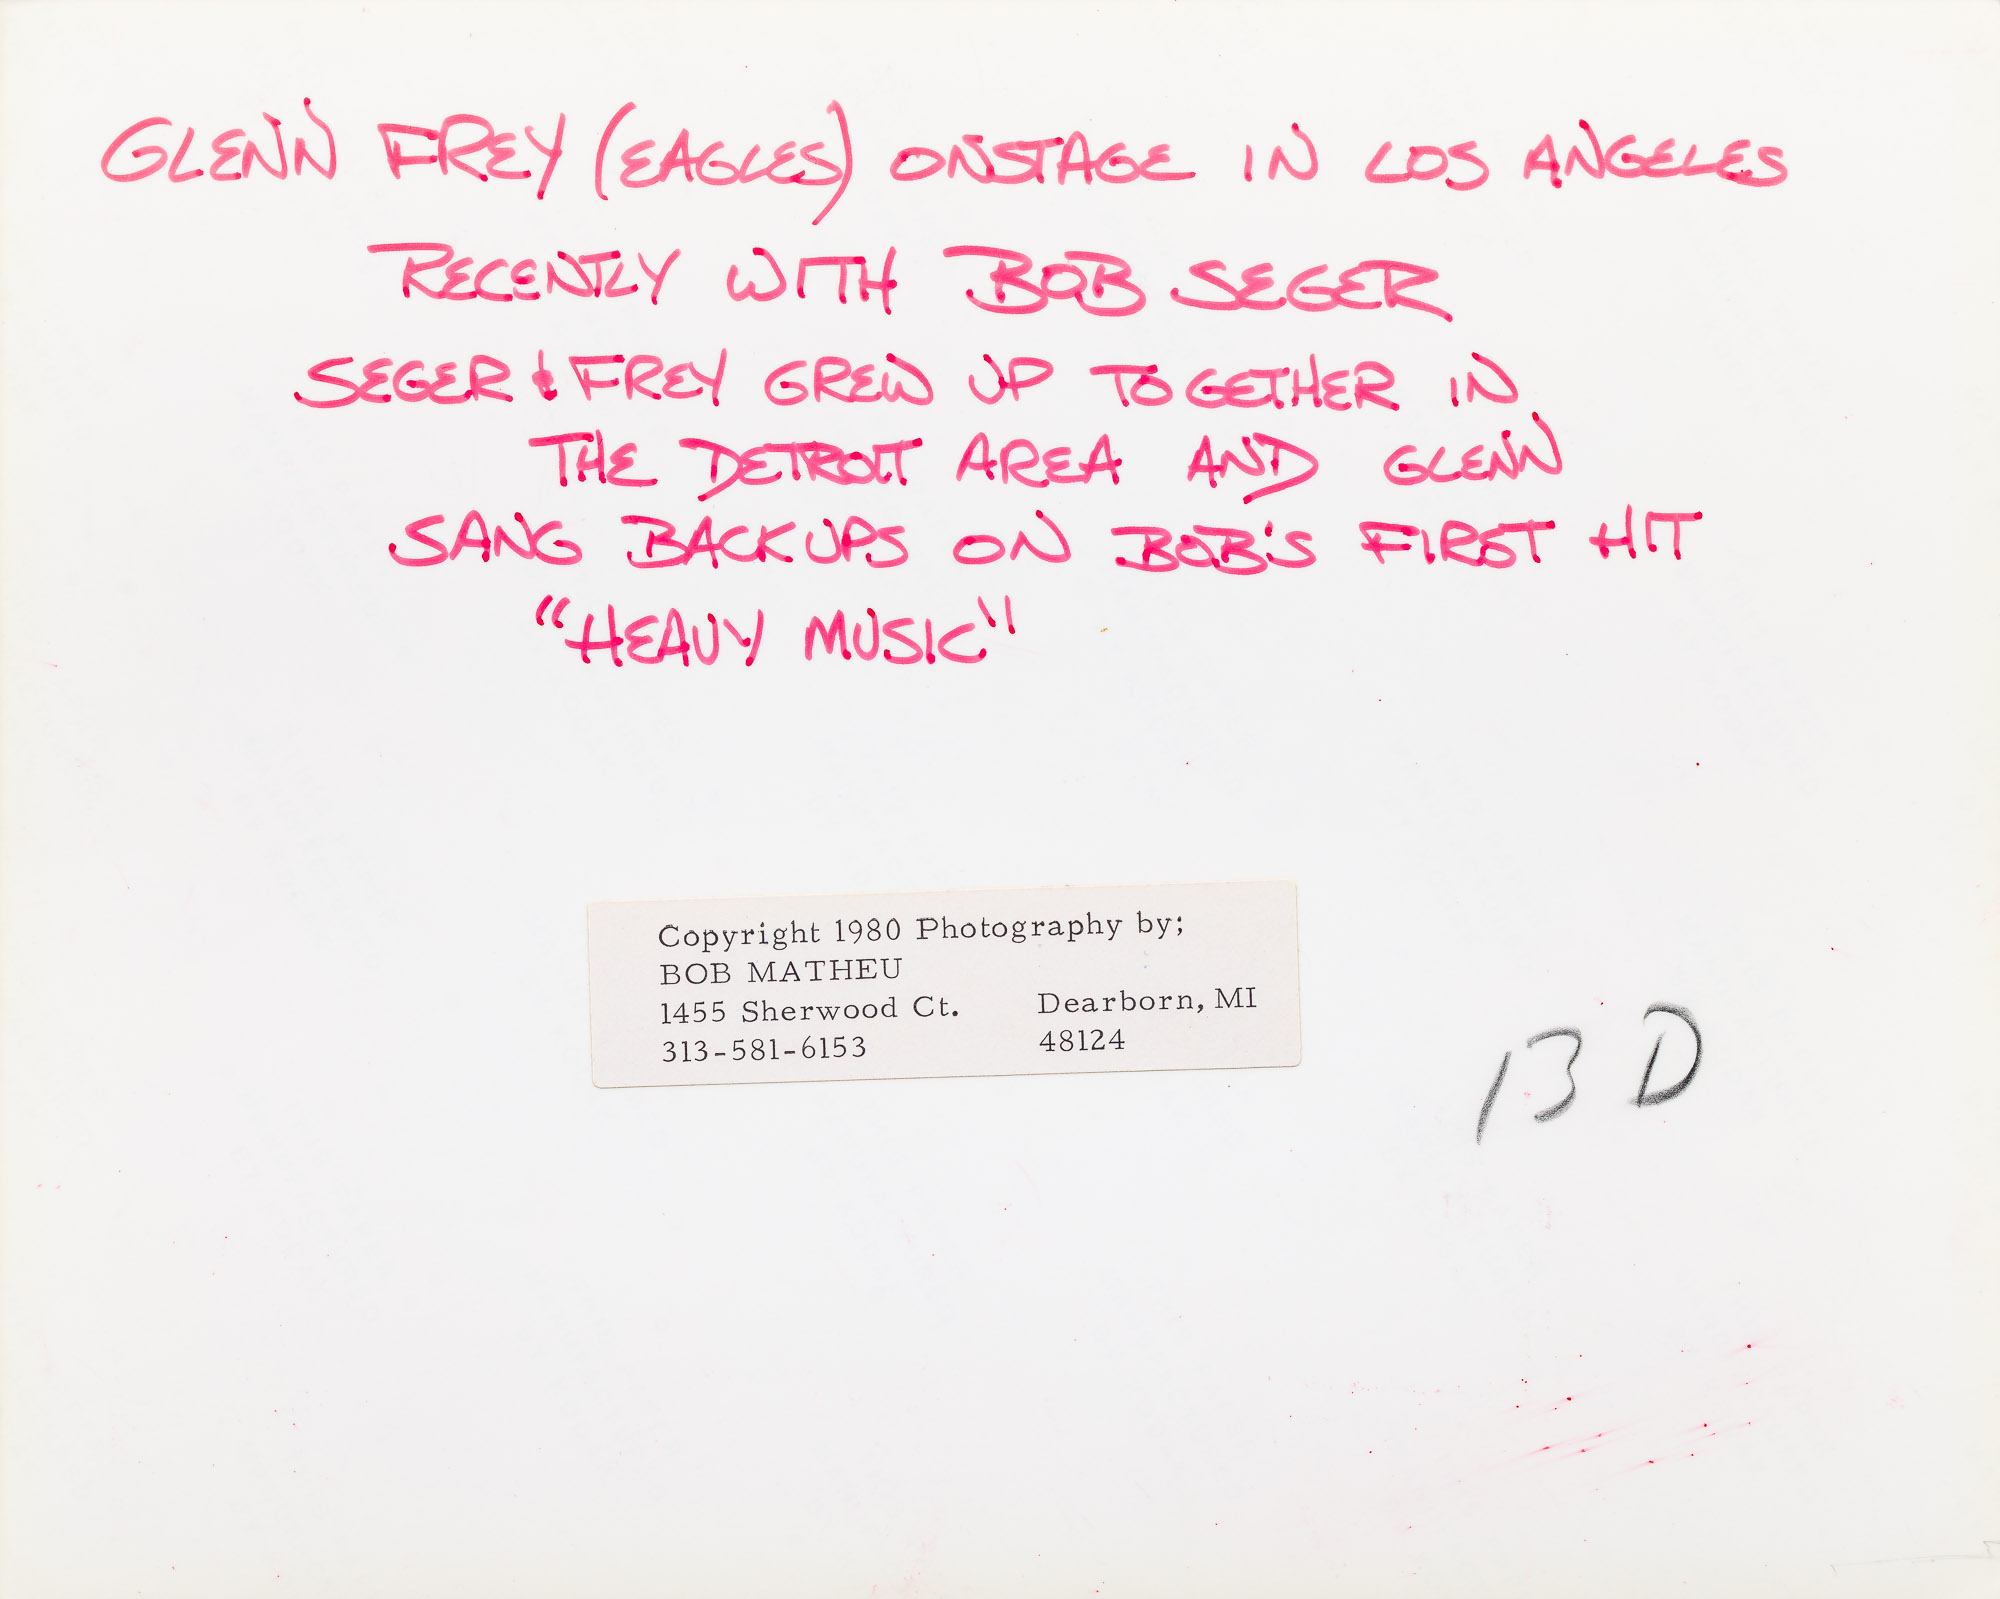 GLENN FREY (EAGLES) ONSTAGE IN LOS ANGELES
RECENTLY WITH BOB SEGER
SEGER & FREY GREW UP TOGETHER IN
THE DETROIT AREA AND GLENN
SANG BACKUPS ON BOB'S FIRST HIT
"HEAVY MUSIC"
Copyright 1980 Photography by;
BOB MATHEU
1455 Sherwood Ct. Dearborn, MI
313-581-6153 48124
13 D